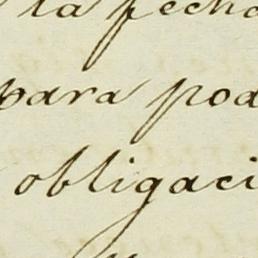 la fecha
para pod
obligaci